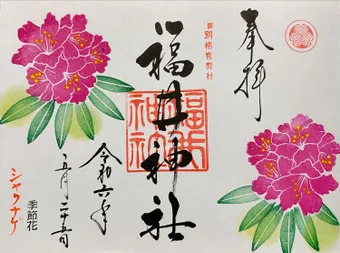 奉拝
旧別格官幣社
福井神社
福井神社
令和六年
五月二十五日
季節花
シャクナゲ